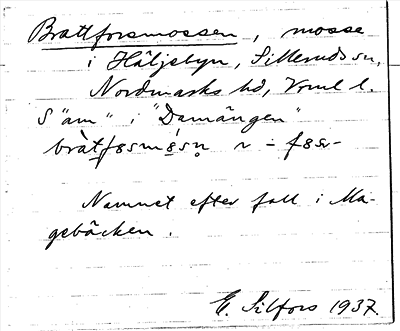 Brattforsmossen, mosse
i Häljebyn, Sillerud sn,
Nordmarks hd, Vrml l.
S "äm" i "Damängen"
Namnet efter fall i Ma-
gebäcken.
E. Silfors 1937.